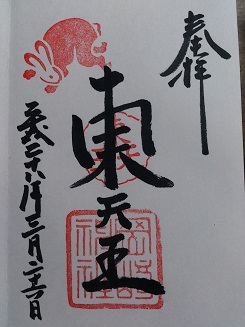 奉拝
東天王
岡﨑神社
平成二十八年三月二十一日